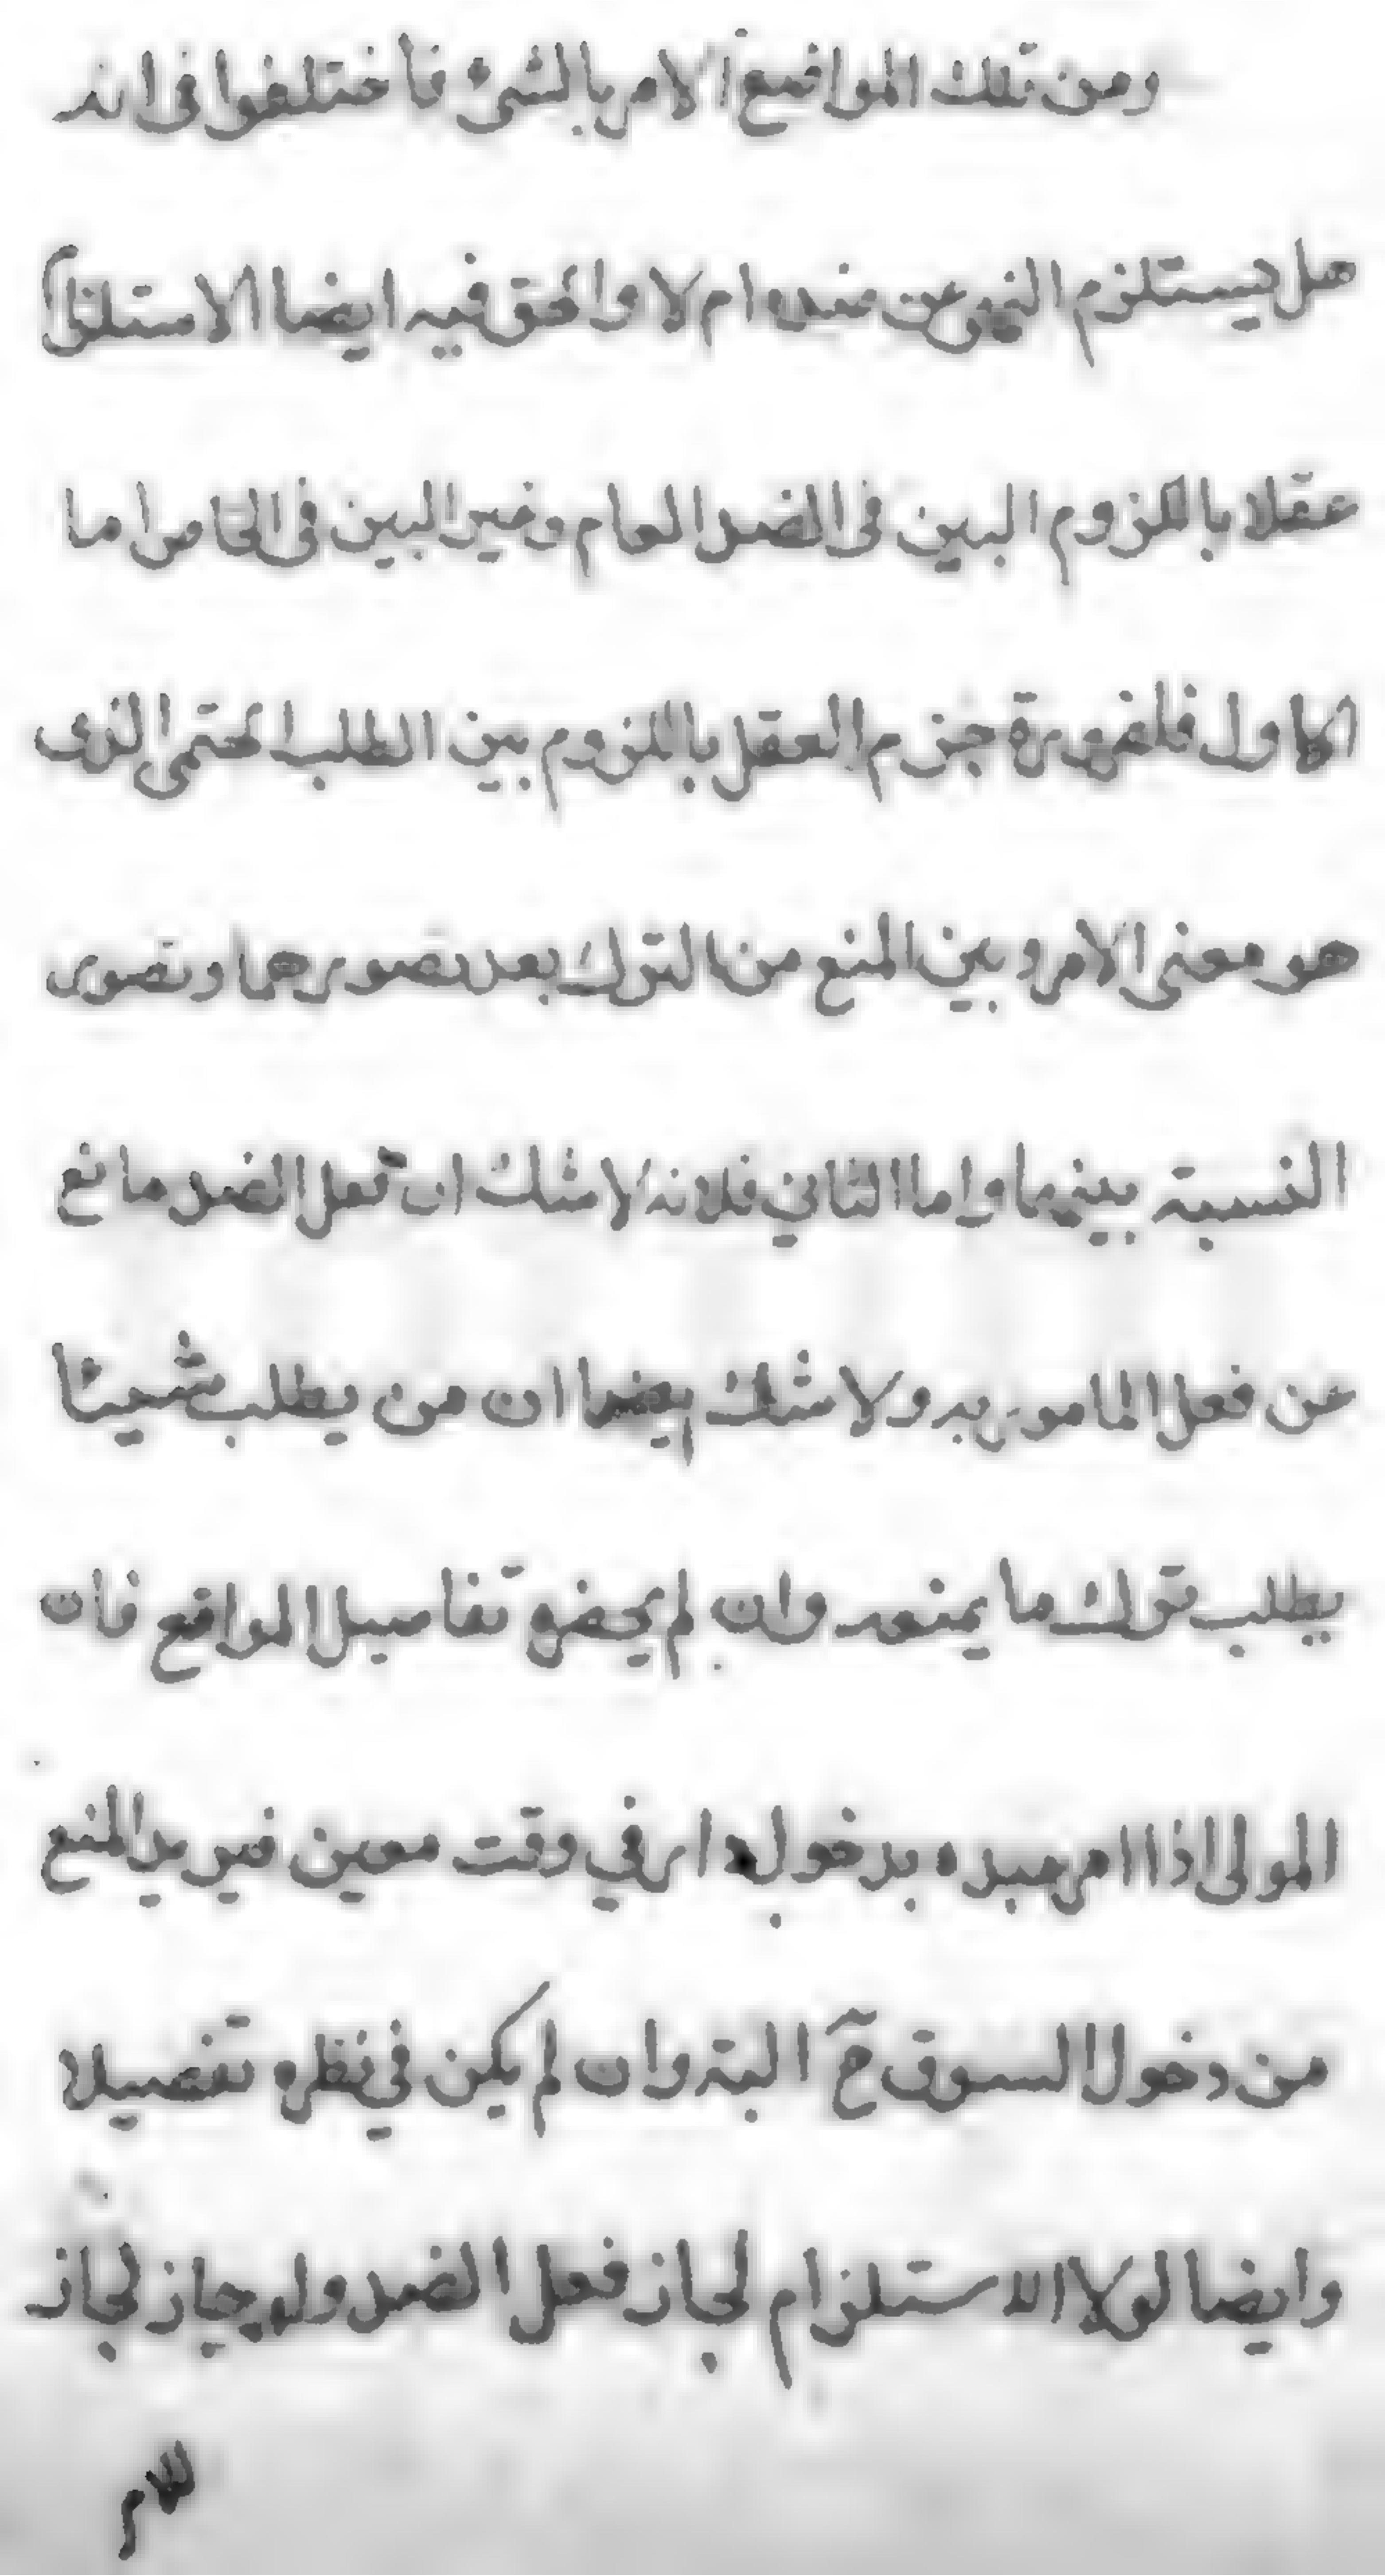 ومن تلك المواضع الامر بالشئ فاختلفوا فى انه
هل يستلزم النهى عن ضده ام لا والحق فيه ايضا الاستلزام
عقلا باللزوم البين فى الضد العام وغير البين فى الخاص اما
الاول فلضرورة جزم العقل باللزوم بين الطلب الحتمى الذى
هو معنى الامر وبين المنع من الترك بعد تصورهما وتصور
النسبة بينهما واما الثاني فلانه لا شك ان فعل الضد مانع
عن فعل المامور به ولا شك ايضا ان من يطلب شيئا
يطلب ترك ما يمنعه وان لم يحضر تفاصيل الموانع فان
المولى اذا امر عبده بدخول دار في وقت معين فيريد المنع
من دخول السوق ح البته وان لم يكن في نظره تفصيلا
وايضا لولا الاستلزام لجاز فعل الضد ولو جاز لجاز